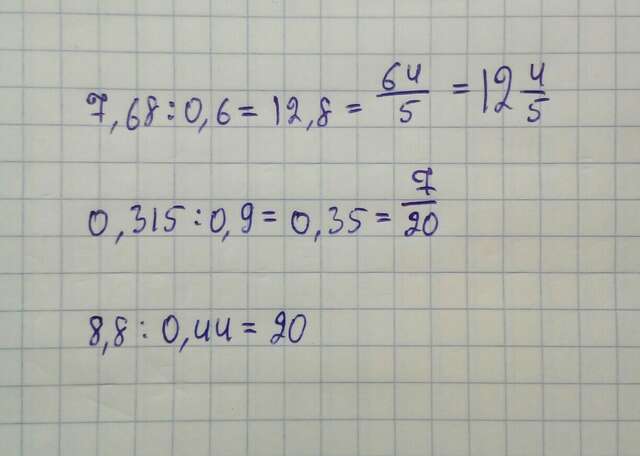 7,68 : 0,6 = 12,8 = 64/5 = 12 4/5
0,315 : 0,9 = 0,35 = 7/20
8,8 : 0,44 = 20